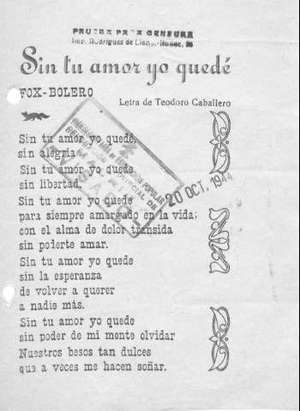 PRUEBA PARA CENSURA
Imp. Rodríguez de
Sin tu amor yo quedé
FOX-BOLERO
Letra de Teodoro Caballero
Sin tu amor yo quedé,
sin alegría
Sin tu amor yo quede
sin libertad.
Sin tu amor yo quede
para siempre amargado en la vida;
con el alma de dolor transida
sin poderte amar.
Sin tu amor yo quede
sin la esperanza
de volver a querer
a nadie más.
Sin tu amor yo quede
sin poder de mi mente olvidar
Nuestros besos tan dulces
que a veces me hacen soñar.
POPULAR
20 OCT. 1944